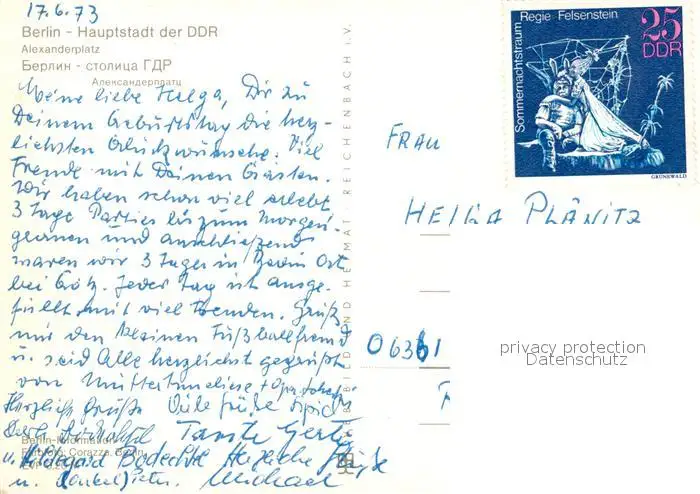 17.6.73
Berlin - Hauptstadt der DDR
Alexanderplatz
Берлин - столица ГДР
Александерплатц
Meine liebe Helga, Dir zu
Deinem Geburtstag die herz-
lichsten Glückwünsche. Viel
Freude mit Deinen Gästen.
Wir haben schon viel erlebt
3 Tage Parties bis zum Morgen-
grauen und anschließend
waren wir 3 Tage in Berlin Ost
bei Götz. Jeder Tag ist ausge-
füllt mit viel Freuden. Grüß
mir den kleinen Fußballfreund
u. seid Alle herzlichst gegrüßt
von Mutter + Opa
Herzliche Grüße Viele Grüße
Tante Gerta
u. Hildegard Herzliche Grüße
u. Onkel Michael
Berlin-Information
Corazza, Berlin
BILD UND HEIMAT REICHENBACH i. V.
Sommernachtstraum
Regie Felsenstein
25
DDR
GRÜNEWALD
FRAU
HELGA PLÄNITZ
06361
privacy protection
Datenschutz